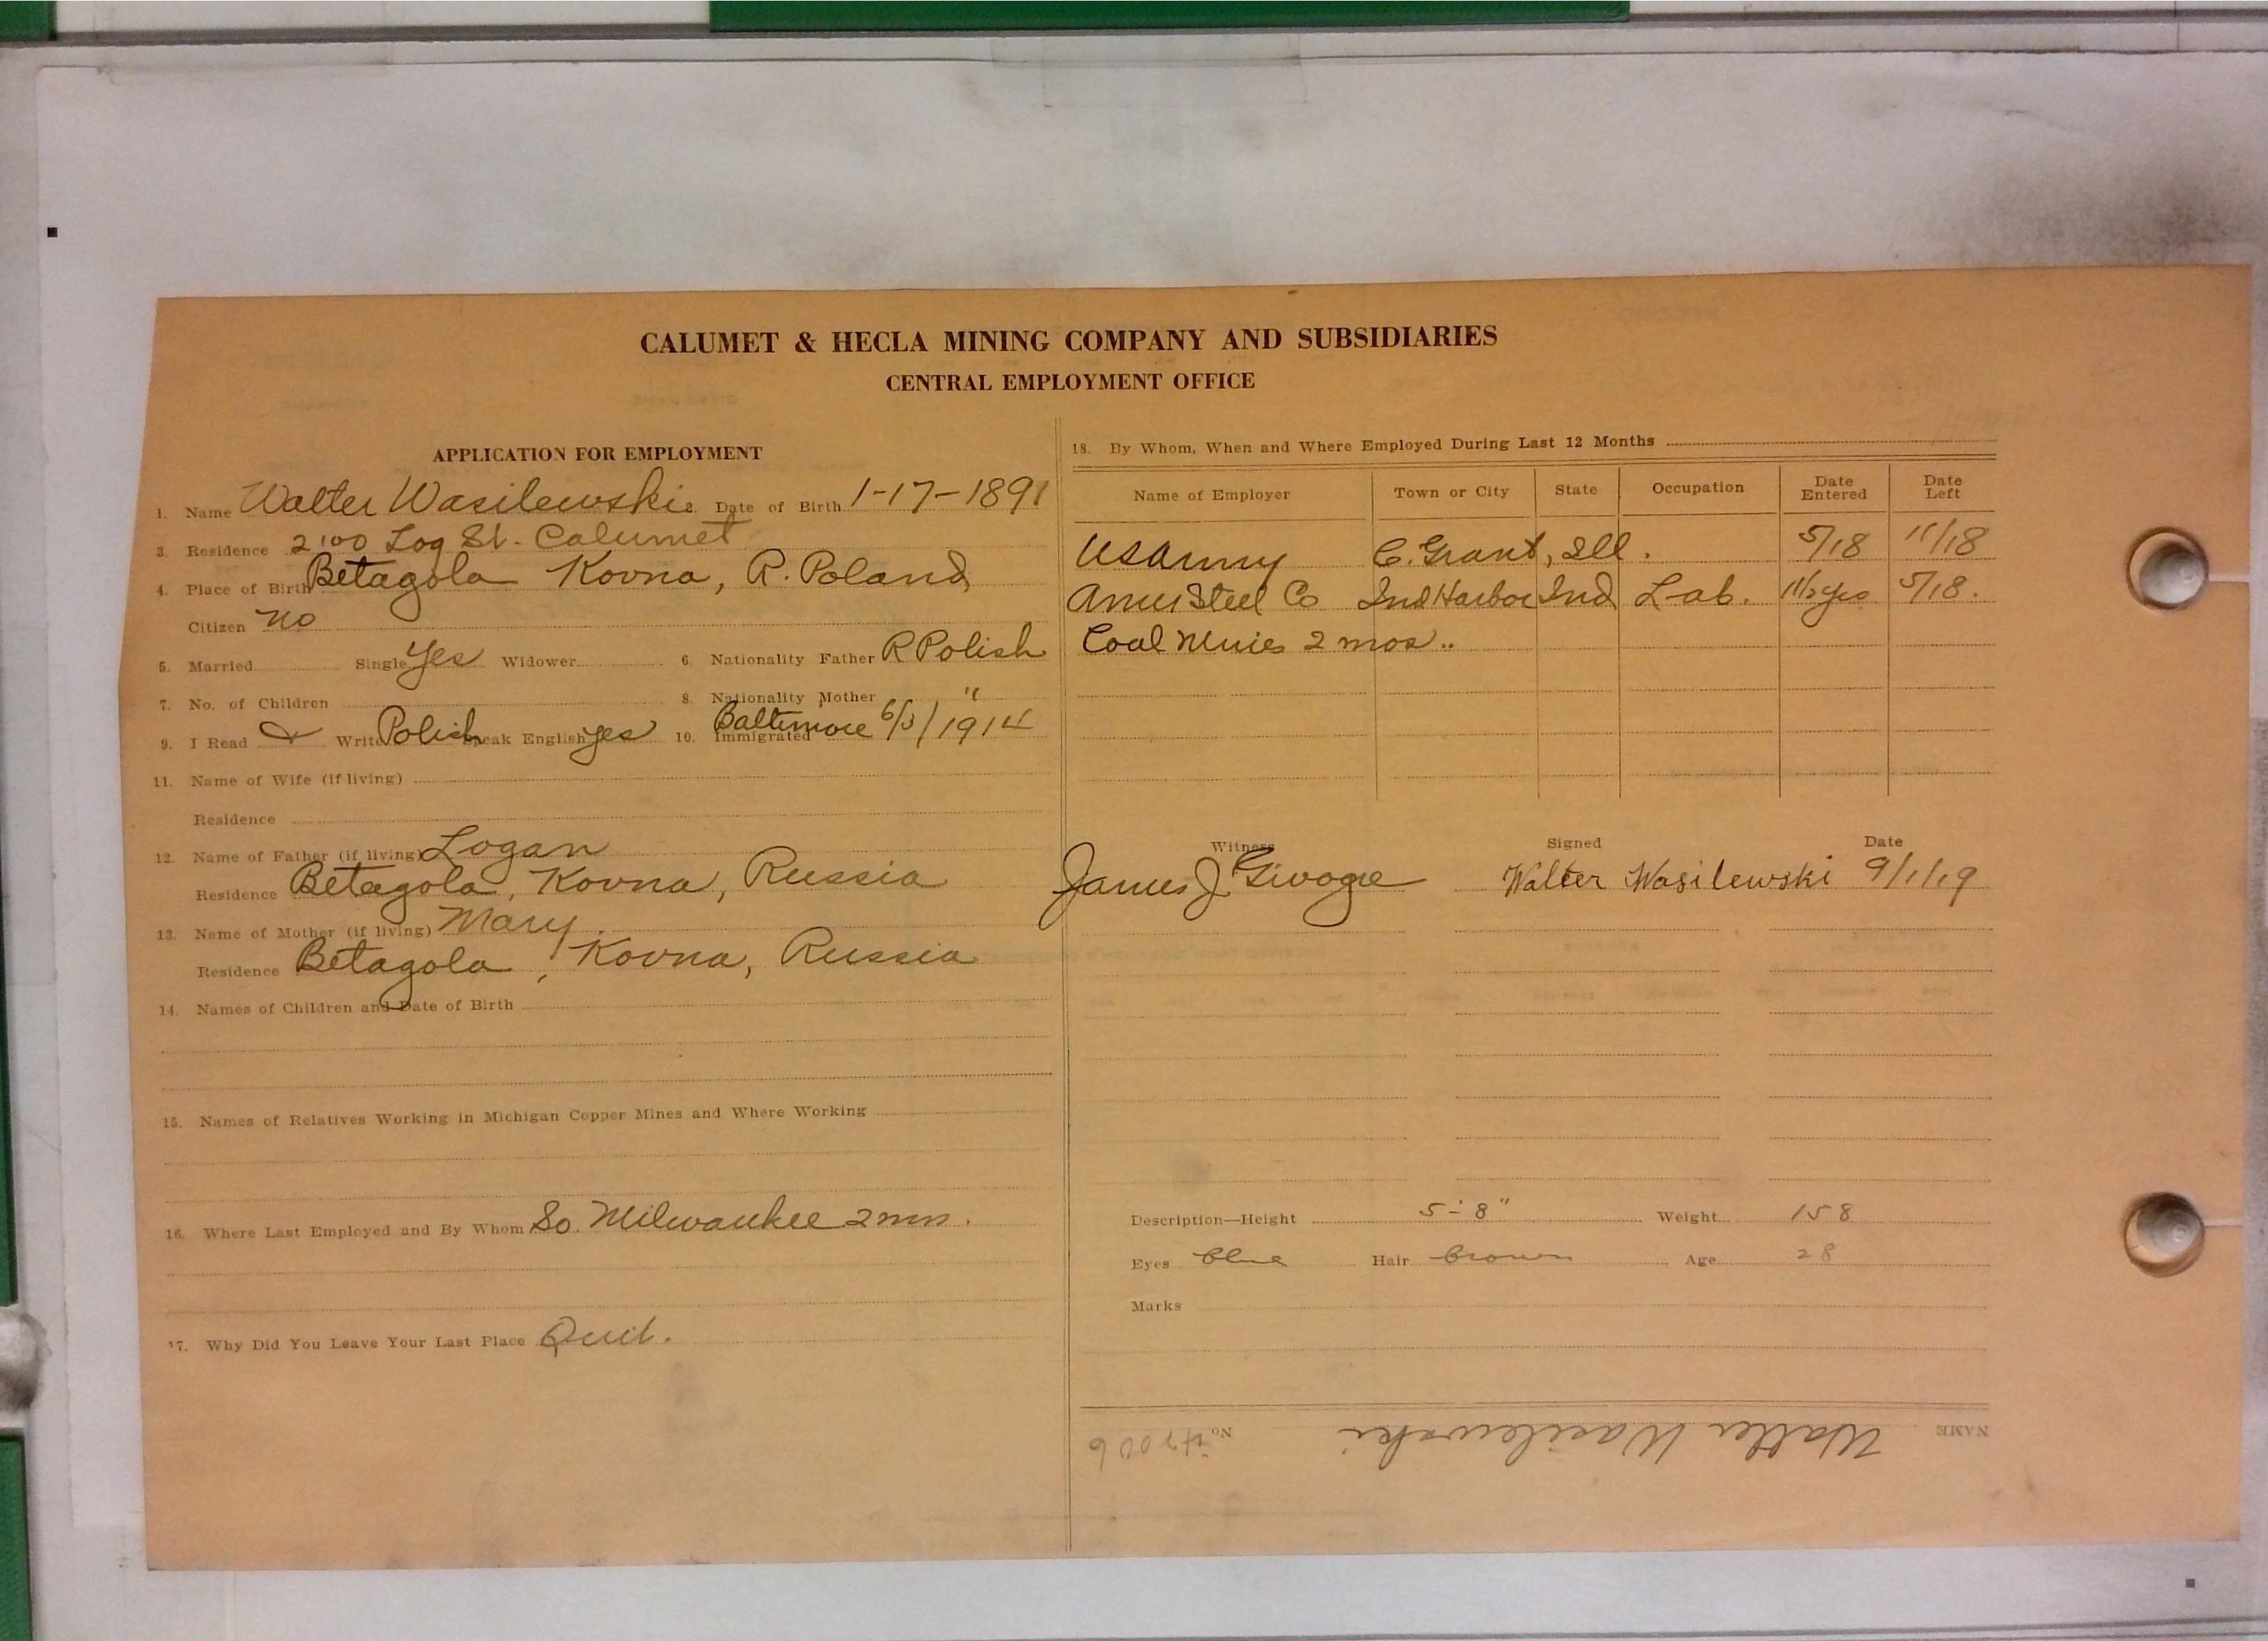 CALUMET & HECLA MINING COMPANY AND SUBSIDIARIES
CENTRAL EMPLOYMENT OFFICE
APPLICATION FOR EMPLOYMENT
1. Name Walter Wasilewski 2. Date of Birth 1-17-1891
3. Residence 2100 Log St. Calumet
4. Place of Birth Betagola Kovna, R. Poland
Citizen no
5. Married Single yes Widower 6. Nationality Father R Polish
7. No. of Children 8. Nationality Mother "
9. I Read & Write Polish Speak English yes 10. Immigrated Baltimore 6/3/1914
11. Name of Wife (if living)
Residence
12. Name of Father (if living) Logan
Residence Betagola, Kovna, Russia
13. Name of Mother (if living) Mary
Residence Betagola, Kovna, Russia
14. Names of Children and Date of Birth
15. Names of Relatives Working in Michigan Copper Mines and Where Working
16. Where Last Employed and By Whom So. Milwaukee 2 mos.
17. Why Did You Leave Your Last Place Quit.
18. By Whom, When and Where Employed During Last 12 Months
Name of Employer Town or City State Occupation Date Entered Date Left
US Army C. Grant, Ill. 5/18 11/18
Amer Steel Co Ind Harbor Ind Lab. 1 1/2 yrs 5/18.
Coal Mines 2 mos..
Witness Signed Date
James J. Walter Wasilewski 9/1/19
Description—Height 5-8" Weight 158
Eyes blue Hair brown Age 28
Marks
NAME Walter Wasilewski No. 47006